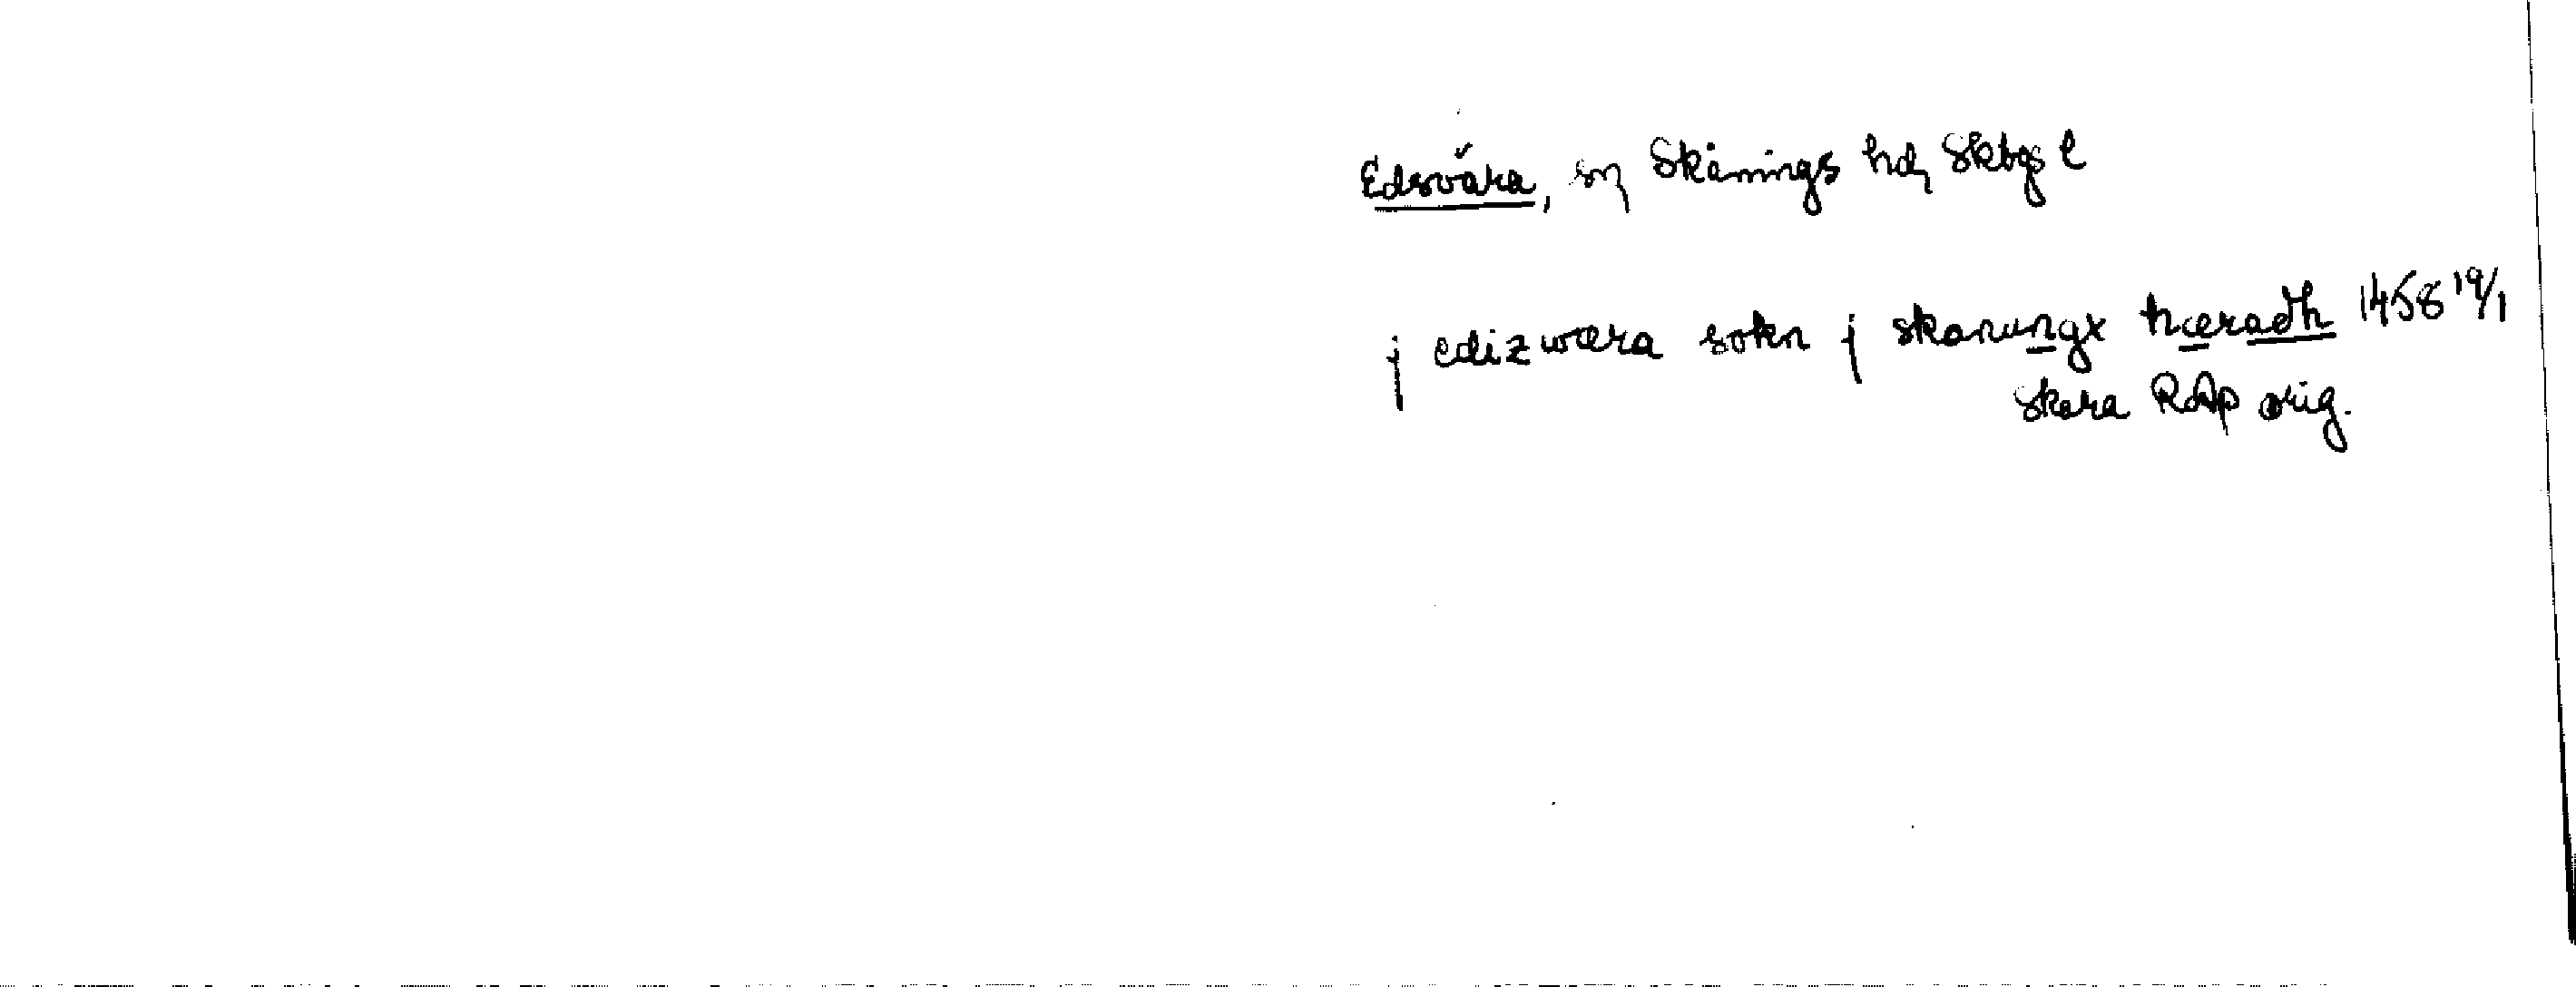 Edsvära, sn Skånings hd, Skbgs l
j edizwæra sokn j skanungx hæradh 1458 19/1
Skara RAp orig.